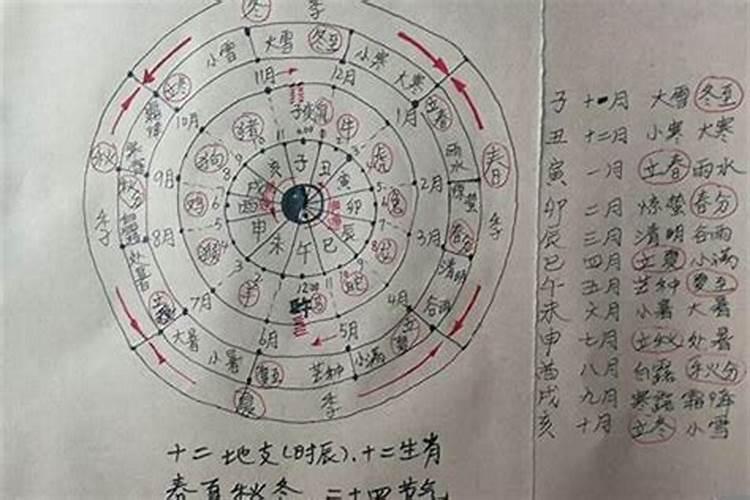 冬 季
小雪 大雪 冬至 小寒 大寒
立冬 11月 12月 立春
10月 子 鼠 1月
霜降 猪 牛 雨水
秋 寒露 狗 虎 春
9月 亥 子 丑 2月
秋分 戌 寅 惊蛰
鸡 酉 卯 兔
季 白露 申 辰 春分 季
8月 未 午 巳 3月
处暑 猴 龙 清明
立秋 羊 马 蛇 谷雨
7月 午 4月
大暑 6月 5月 立夏
小暑 夏至 芒种 小满
夏 季
子 十一月 大雪 冬至
丑 十二月 小寒 大寒
寅 一月 立春 雨水
卯 二月 惊蛰 春分
辰 三月 清明 谷雨
巳 四月 立夏 小满
午 五月 芒种 夏至
未 六月 小暑 大暑
申 七月 立秋 处暑
酉 八月 白露 秋分
戌 九月 寒露 霜降
亥 十月 立冬 小雪
十二地支(时辰)、十二生肖
春夏秋冬 二十四节气